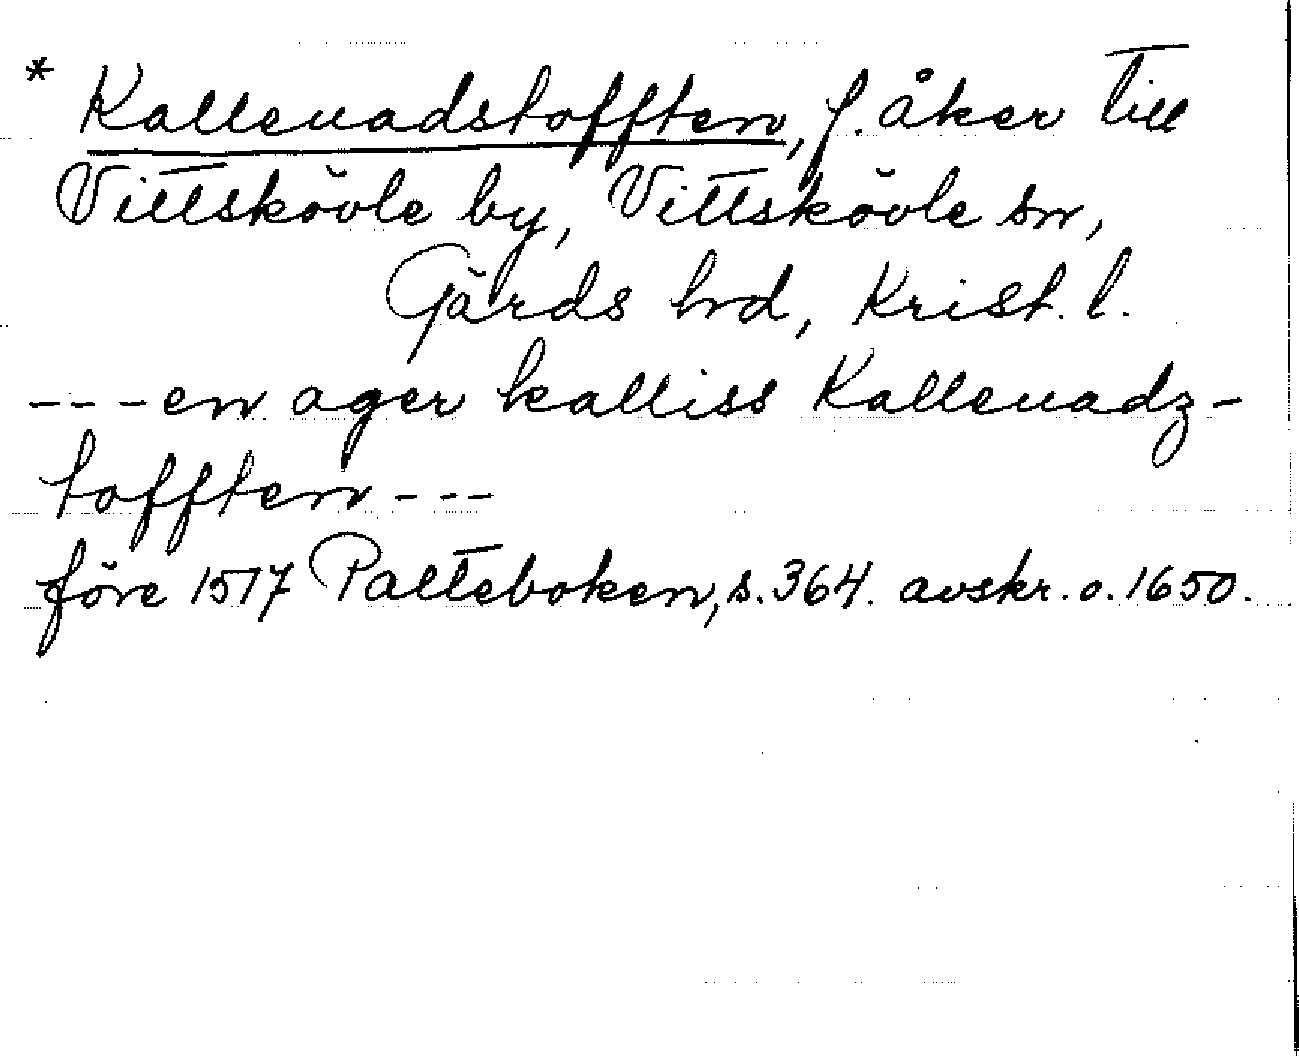 * Kalleuadstofften, f. åker till
Vittskövle by, Vittskövle sn,
Gärds hd, Krist. l.
--- en ager kalliss Kalleuadz-
tofften ---
före 1517 Palteboken, s. 364. avskr. o. 1650.